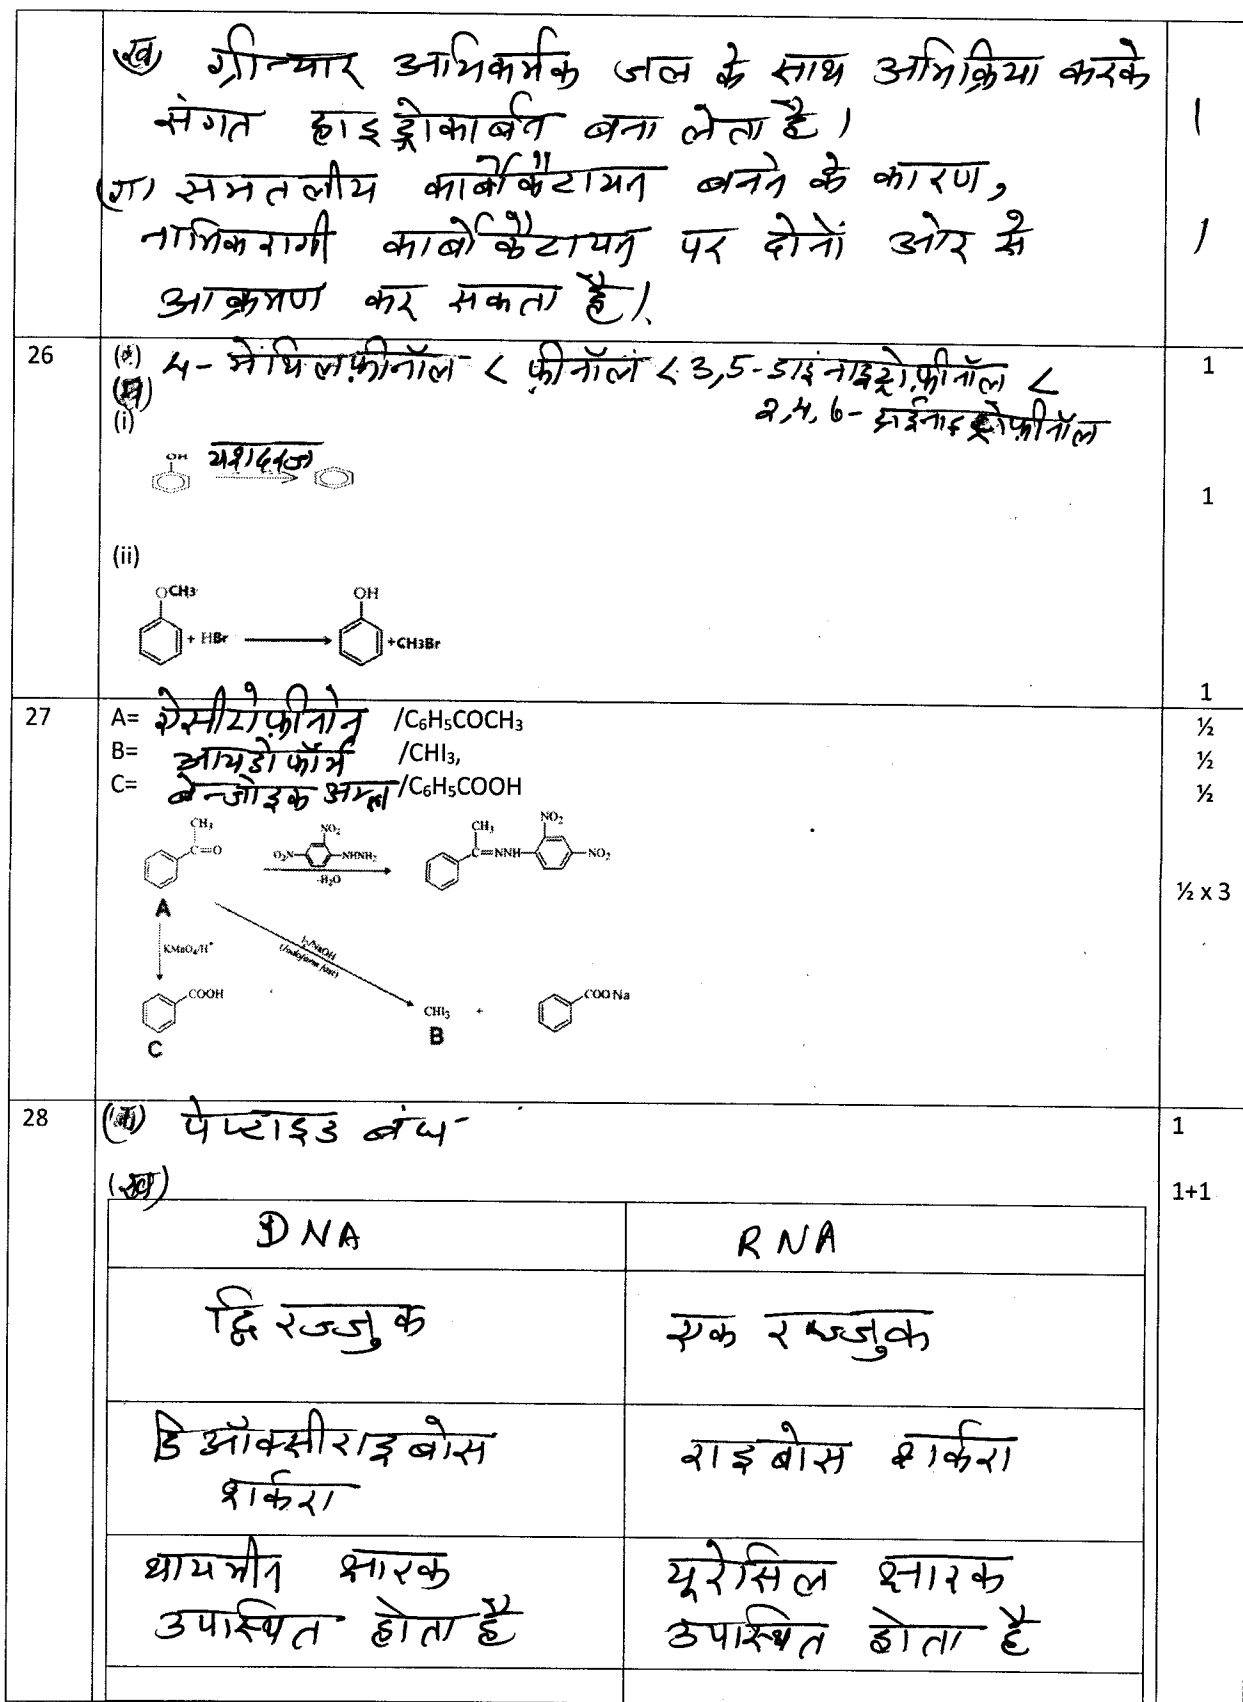 (ख) ग्रीन्यार अभिकर्मक जल के साथ अभिक्रिया करके
संगत हाइड्रोकार्बन बना लेता है। 1
(ग) समतलीय कार्बोकैटायन बनने के कारण,
नाभिकरागी कार्बोकैटायन पर दोनों ओर से 1
आक्रमण कर सकता है।
26 (क) 4-मेथिलफ़ीनॉल < फ़ीनॉल < 3,5-डाइनाइट्रोफ़ीनॉल < 1
2,4,6-ट्राईनाइट्रोफ़ीनॉल
(ख)
(i)
OH यशदरज
1
(ii)
OCH3 OH
+ HBr +CH3Br
1
27 A= ऐसीटोफ़ीनोन /C₆H₅COCH₃ ½
B= आयडोफॉर्म /CHI₃, ½
C= बेन्जोइक अम्ल /C₆H₅COOH ½
CH₃ NO₂ CH₃ NO₂
C=O O₂N NHNH₂ C=NNH NO₂
-H₂O
A ½ x 3
KMnO₄/H⁺ I₂/NaOH
(Iodoform test)
COOH CHI₃ + COONa
C B
28 (क) पेप्टाइड बंध 1
(ख) 1+1
DNA RNA
द्वि रज्जुक एक रज्जुक
डिऑक्सीराइबोस राइबोस शर्करा
शर्करा
थायमीन क्षारक यूरेसिल क्षारक
उपस्थित होता है उपस्थित होता है